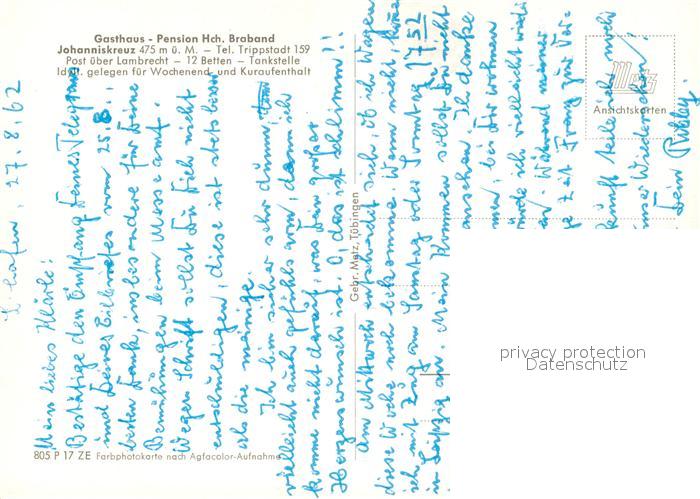 Gasthaus - Pension Hch. Braband
Johanniskreuz 475 m ü. M. — Tel. Trippstadt 159
Post über Lambrecht — 12 Betten — Tankstelle
Idyll. gelegen für Wochenend- und Kuraufenthalt
Metz
Ansichtskarten
27.8.62
Mein liebes Klärle!
Bestätige den Empfang Deines Telegramms
und Deines Eilbriefes vom 25.8..
besten Dank, insbesondere für Deine
Bemühungen beim Messeamt.
Wegen Schrift sollst Du Dich nicht
entschuldigen, diese ist stets besser
als die meinige.
Ich bin sicher sehr dumm und
vielleicht auch gefühlsarm, denn ich
komme nicht darauf, was Dein großer
Herzenswunsch ist. O, das ist schlimm!!
Am Mittwoch entscheidet sich, ob ich Wagen
diese Woche noch bekomme. Wenn nicht,
ich mit Zug am Samstag oder Sonntag 17.52
in Leipzig an. Mein Kommen sollst Du nicht
ansehen. Ich danke
bei Dir wohnen
würde ich vielleicht
Während meiner
Zeit Franz zur Ver-
teile ich noch
Wiedersehen!
Dein
Gebr. Metz, Tübingen
805 P 17 ZE Farbphotokarte nach Agfacolor-Aufnahme
privacy protection
Datenschutz